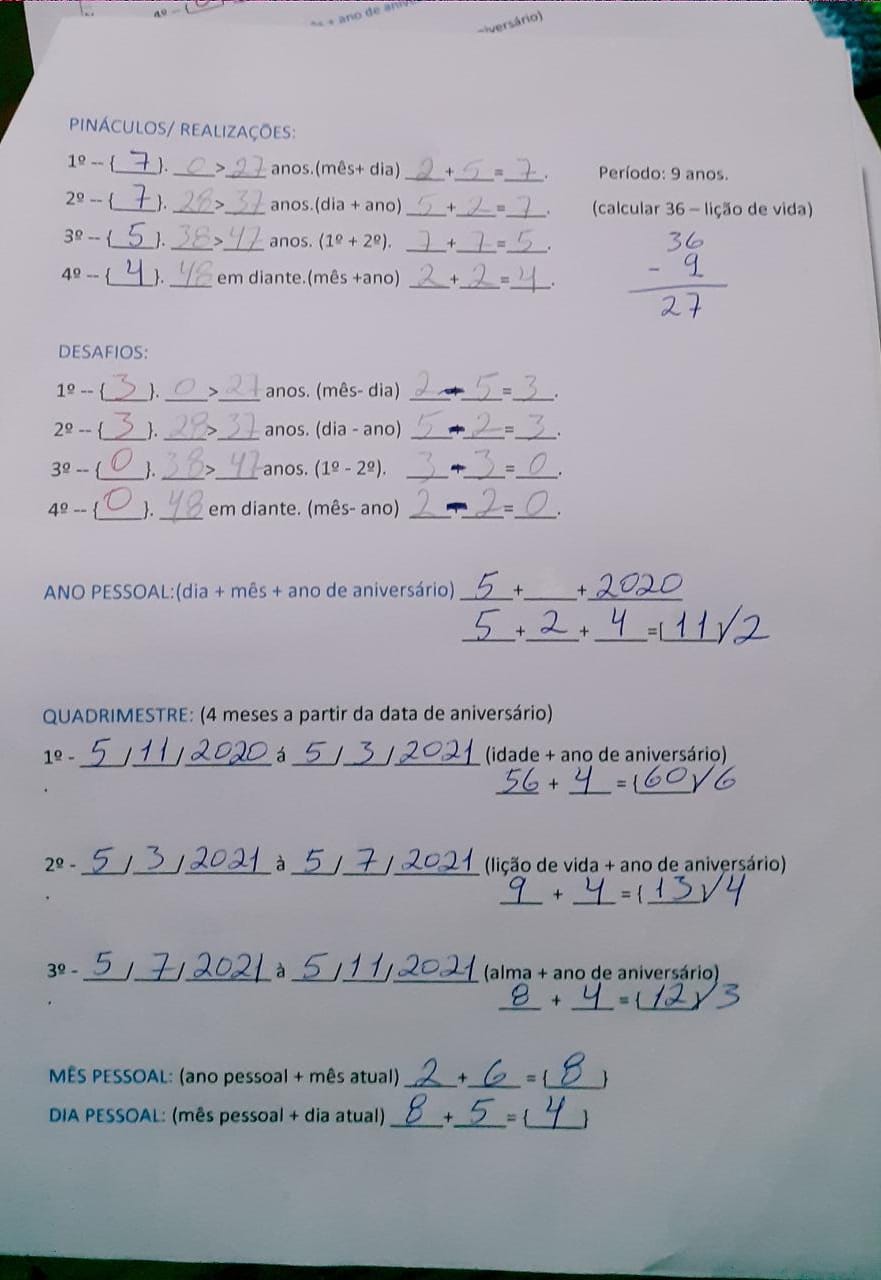 4º -- {
+ ano de
niversário)
PINÁCULOS/ REALIZAÇÕES:
1º -- { 7 }. 0 > 27 anos.(mês+ dia) 2 + 5 = 7 . Período: 9 anos.
2º -- { 7 }. 28 > 37 anos.(dia + ano) 5 + 2 = 7 . (calcular 36 – lição de vida)
3º -- { 5 }. 38 > 47 anos. (1º + 2º). 7 + 7 = 5 . 36
4º -- { 4 }. 48 em diante.(mês +ano) 2 + 2 = 4 . - 9
27
DESAFIOS:
1º -- { 3 }. 0 > 27 anos. (mês- dia) 2 - 5 = 3 .
2º -- { 3 }. 28 > 37 anos. (dia - ano) 5 - 2 = 3 .
3º -- { 0 }. 38 > 47 anos. (1º - 2º). 3 - 3 = 0 .
4º -- { 0 }. 48 em diante. (mês- ano) 2 - 2 = 0 .
ANO PESSOAL:(dia + mês + ano de aniversário) 5 + ____ + 2020
5 + 2 + 4 =( 11 )/ 2
QUADRIMESTRE: (4 meses a partir da data de aniversário)
1º - 5 / 11 / 2020 á 5 / 3 / 2021 (idade + ano de aniversário)
. 56 + 4 = ( 60 )/ 6
2º - 5 / 3 / 2021 à 5 / 7 / 2021 (lição de vida + ano de aniversário)
. 9 + 4 = ( 13 )/ 4
3º - 5 / 7 / 2021 à 5 / 11 / 2021 (alma + ano de aniversário)
. 8 + 4 = ( 12 )/ 3
MÊS PESSOAL: (ano pessoal + mês atual) 2 + 6 = { 8 }
DIA PESSOAL: (mês pessoal + dia atual) 8 + 5 = { 4 }